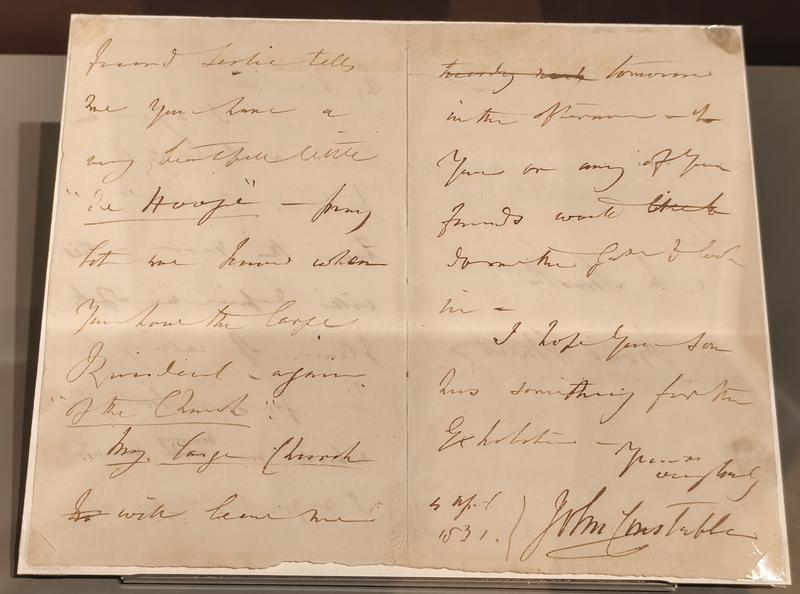 friend Leslie tells
me you have a
very beautifull little
"de Hooge" – pray
let me know when
You have the large
Ruisdael – again
"of the Church".
My large Church
will leave me
tomorrow
in the afternoon – if
You or any of Your
friends would like to
do me the favor to look
in –
I hope Your son
has something for the
Exhibition –
Yours
very truly
4 Apl.
1831. John Constable